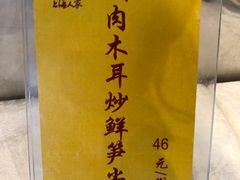 上海人家
肉木耳炒鲜笋尖
46
元/